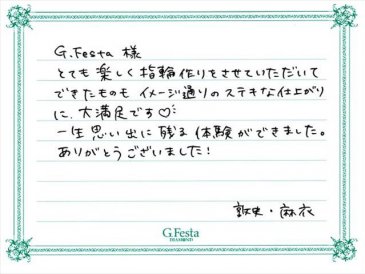 G.Festa 様
とても楽しく指輪作りをさせていただいて
できたものも イメージ通りのステキな仕上がり
に、大満足です♡
一生思い出に残る体験ができました。
ありがとうございました!
敦史・麻衣
G.Festa
DIAMOND